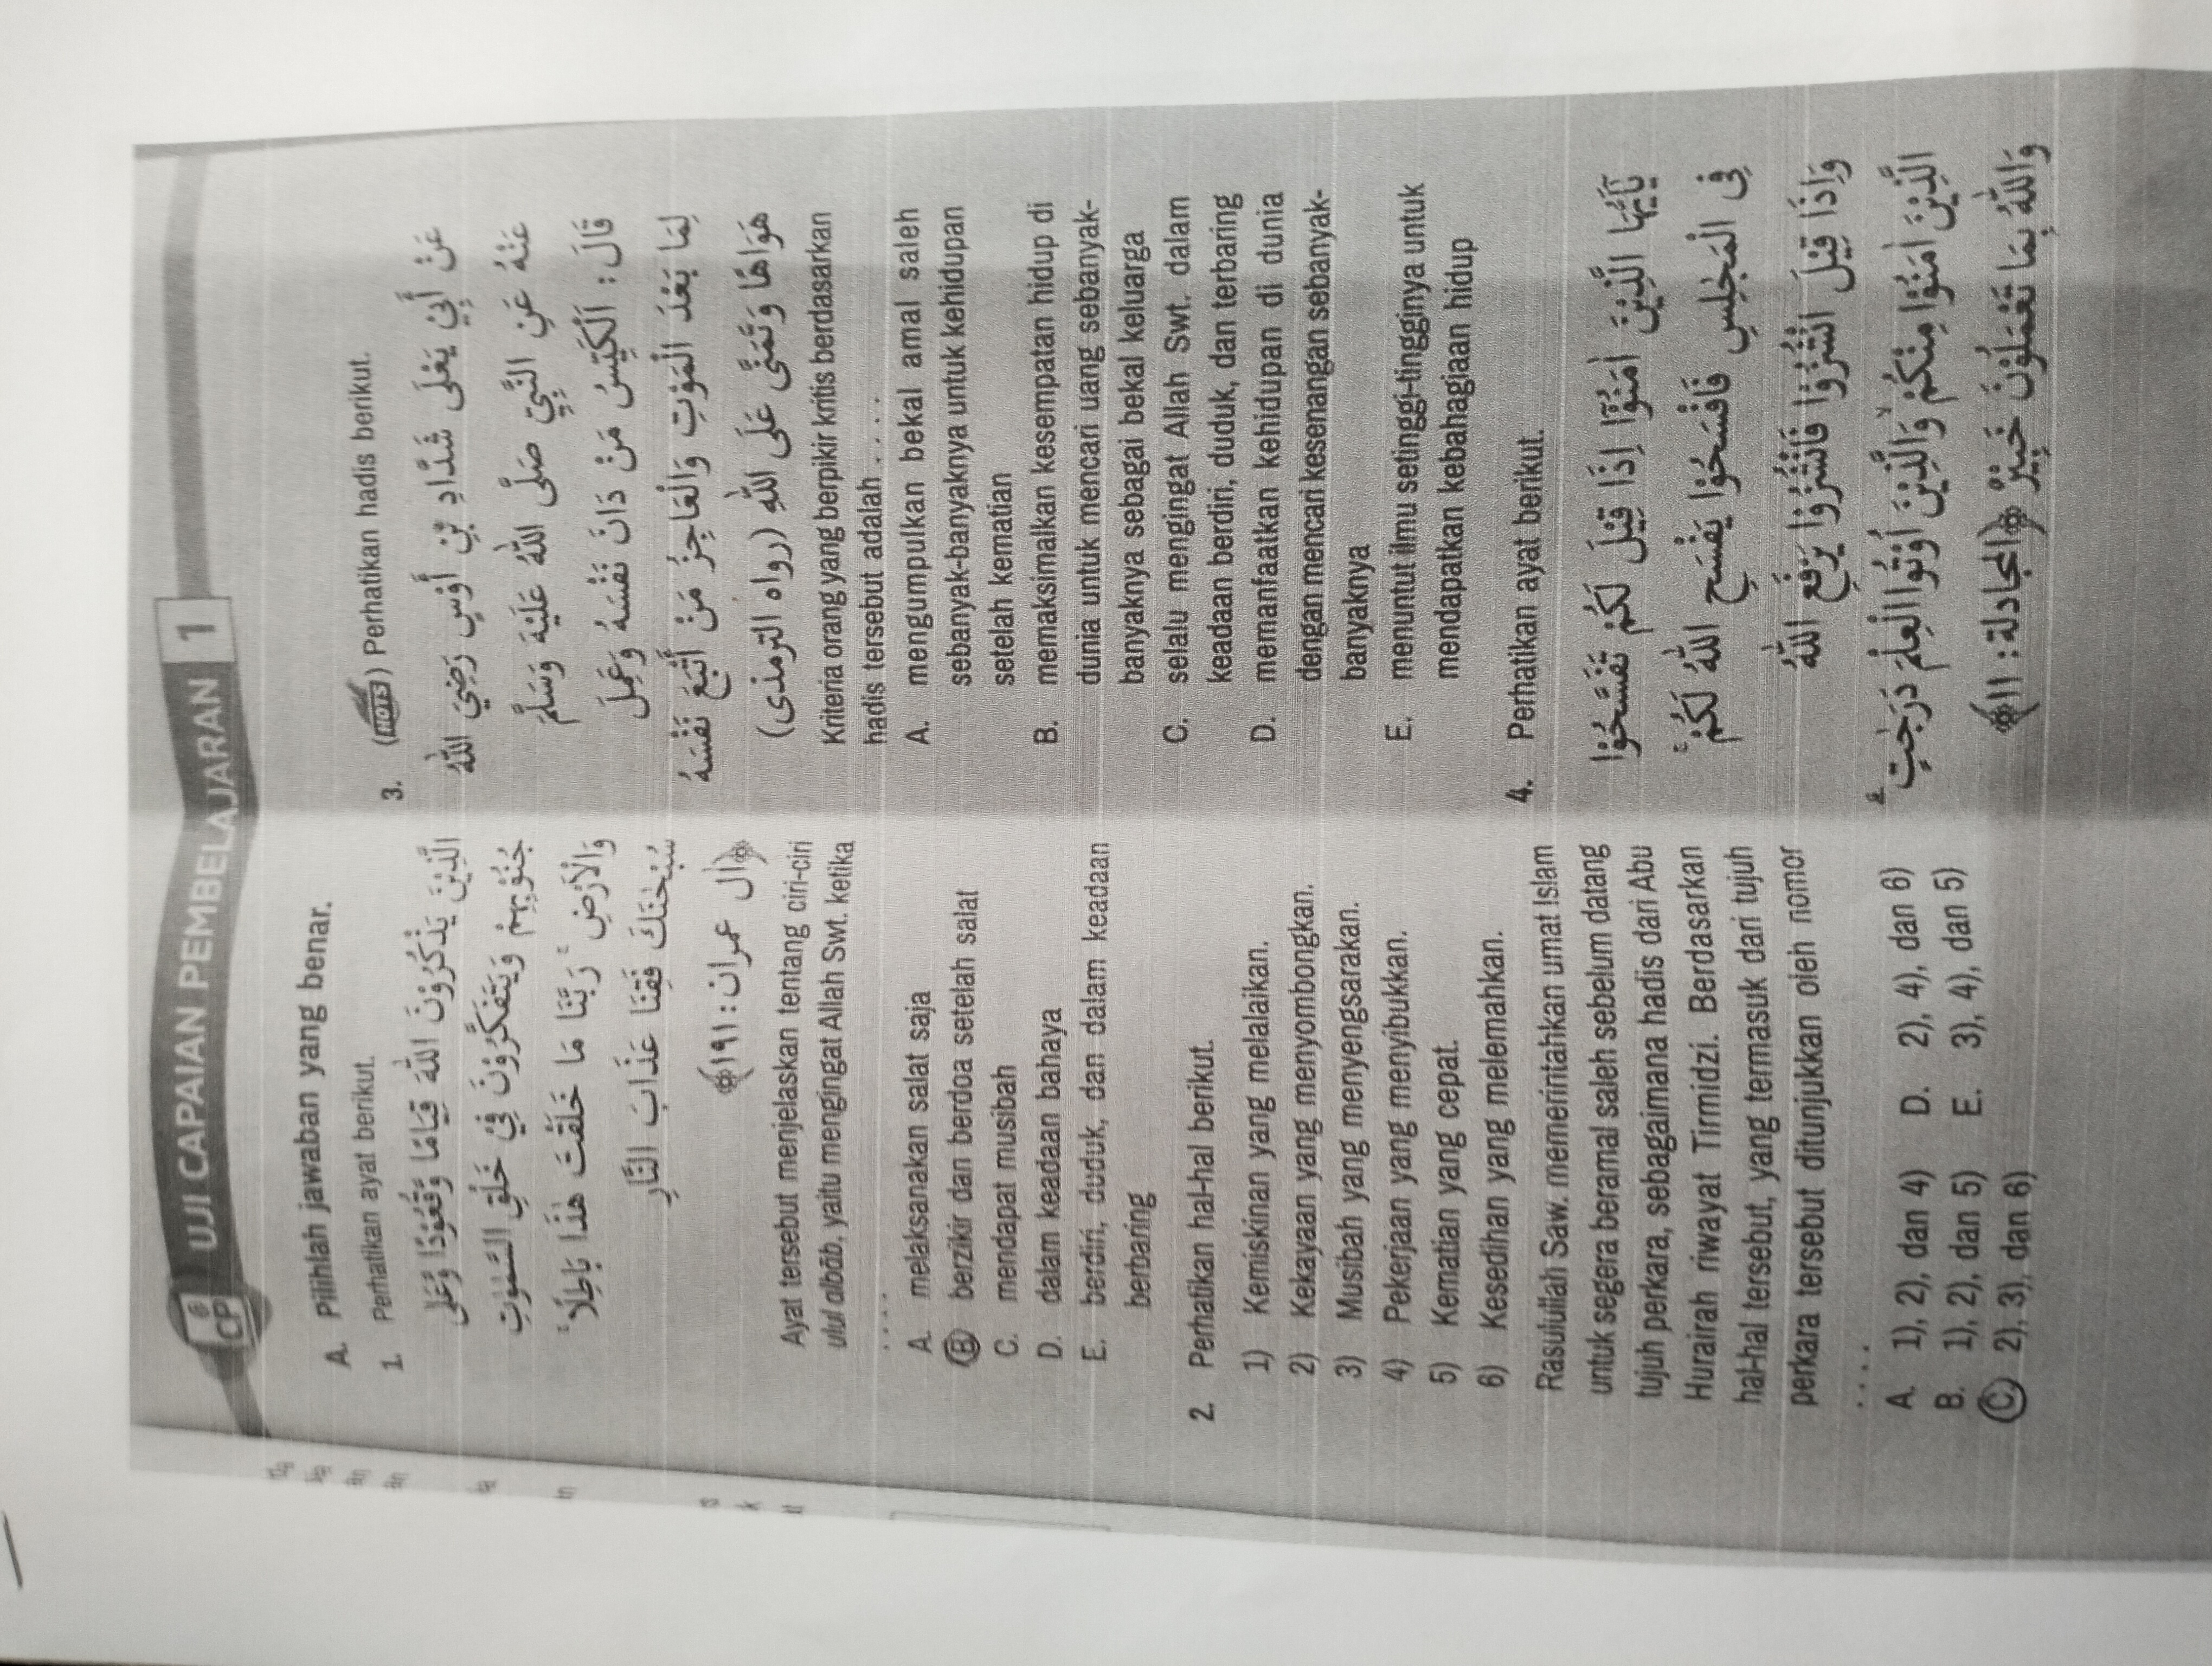 UJI CAPAIAN PEMBELAJARAN 1
CP
A. Pilihlah jawaban yang benar.
1. Perhatikan ayat berikut.
الَّذِيْنَ يَذْكُرُوْنَ اللّٰهَ قِيَامًا وَّقُعُوْدًا وَّعَلٰى
جُنُوْبِهِمْ وَيَتَفَكَّرُوْنَ فِيْ خَلْقِ السَّمٰوٰتِ
وَالْاَرْضِۚ رَبَّنَا مَا خَلَقْتَ هٰذَا بَاطِلًاۚ
سُبْحٰنَكَ فَقِنَا عَذَابَ النَّارِ
﴿ال عمران : ١٩١﴾
Ayat tersebut menjelaskan tentang ciri-ciri
ulul albāb, yaitu mengingat Allah Swt. ketika
. . . .
A. melaksanakan salat saja
B. berzikir dan berdoa setelah salat
C. mendapat musibah
D. dalam keadaan bahaya
E. berdiri, duduk, dan dalam keadaan
berbaring
2. Perhatikan hal-hal berikut.
1) Kemiskinan yang melalaikan.
2) Kekayaan yang menyombongkan.
3) Musibah yang menyengsarakan.
4) Pekerjaan yang menyibukkan.
5) Kematian yang cepat.
6) Kesedihan yang melemahkan.
Rasulullah Saw. memerintahkan umat Islam
untuk segera beramal saleh sebelum datang
tujuh perkara, sebagaimana hadis dari Abu
Hurairah riwayat Tirmidzi. Berdasarkan
hal-hal tersebut, yang termasuk dari tujuh
perkara tersebut ditunjukkan oleh nomor
. . . .
A. 1), 2), dan 4) D. 2), 4), dan 6)
B. 1), 2), dan 5) E. 3), 4), dan 5)
C. 2), 3), dan 6)
3. (HOTS) Perhatikan hadis berikut.
عَنْ أَبِيْ يَعْلَى شَدَّادِ بْنِ أَوْسٍ رَضِيَ اللّٰهُ
عَنْهُ عَنِ النَّبِيِّ صَلَّى اللّٰهُ عَلَيْهِ وَسَلَّمَ
قَالَ : اَلْكَيِّسُ مَنْ دَانَ نَفْسَهُ وَعَمِلَ
لِمَا بَعْدَ الْمَوْتِ وَالْعَاجِزُ مَنْ أَتْبَعَ نَفْسَهُ
هَوَاهَا وَتَمَنَّى عَلَى اللّٰهِ (رواه الترمذى)
Kriteria orang yang berpikir kritis berdasarkan
hadis tersebut adalah . . . .
A. mengumpulkan bekal amal saleh
sebanyak-banyaknya untuk kehidupan
setelah kematian
B. memaksimalkan kesempatan hidup di
dunia untuk mencari uang sebanyak-
banyaknya sebagai bekal keluarga
C. selalu mengingat Allah Swt. dalam
keadaan berdiri, duduk, dan terbaring
D. memanfaatkan kehidupan di dunia
dengan mencari kesenangan sebanyak-
banyaknya
E. menuntut ilmu setinggi-tingginya untuk
mendapatkan kebahagiaan hidup
4. Perhatikan ayat berikut.
يٰٓاَيُّهَا الَّذِيْنَ اٰمَنُوْٓا اِذَا قِيْلَ لَكُمْ تَفَسَّحُوْا
فِى الْمَجٰلِسِ فَافْسَحُوْا يَفْسَحِ اللّٰهُ لَكُمْۚ
وَاِذَا قِيْلَ انْشُزُوْا فَانْشُزُوْا يَرْفَعِ اللّٰهُ
الَّذِيْنَ اٰمَنُوْا مِنْكُمْۙ وَالَّذِيْنَ اُوْتُوا الْعِلْمَ دَرَجٰتٍۗ
وَاللّٰهُ بِمَا تَعْمَلُوْنَ خَبِيْرٌ ﴿المجادلة : ١١﴾